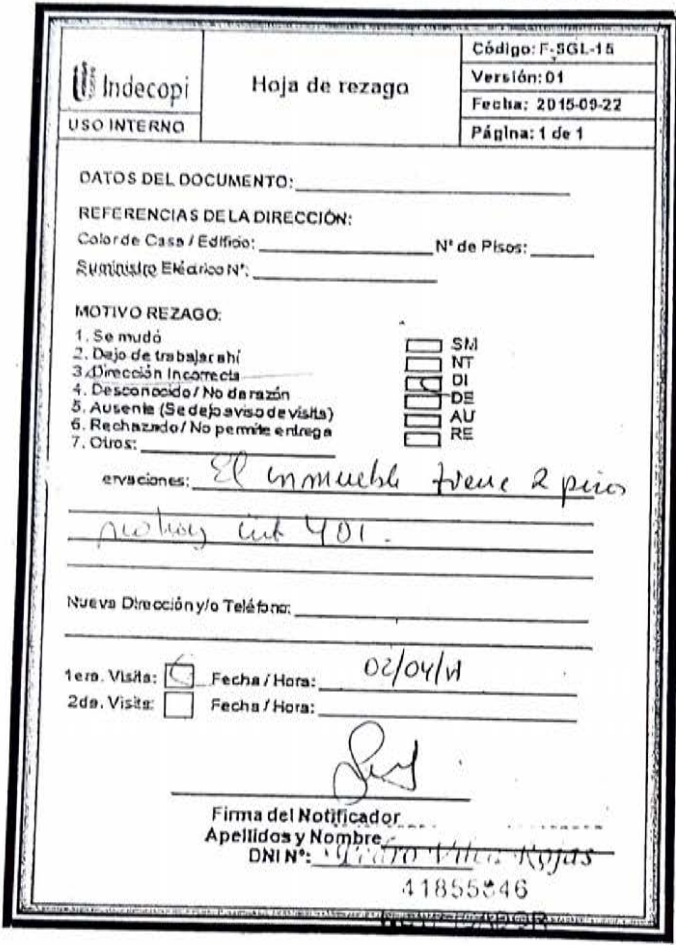 Indecopi
USO INTERNO
Hoja de rezago
Código: F-SGL-15
Versión: 01
Fecha: 2015-09-22
Página: 1 de 1
DATOS DEL DOCUMENTO:
REFERENCIAS DE LA DIRECCIÓN:
Color de Casa / Edificio: N° de Pisos:
Suministro Eléctrico N°:
MOTIVO REZAGO:
1. Se mudó SM
2. Dejo de trabajar ahí NT
3. Dirección Incorrecta DI
4. Desconocido / No da razón DE
5. Ausente (Se dejo aviso de visita) AU
6. Rechazado / No permite entrega RE
7. Otros:
ervaciones: El inmueble tiene 2 pisos
no hay int 401.
Nueva Dirección y/o Teléfono:
1era. Visita: Fecha / Hora: 02/04/
2da. Visita: Fecha / Hora:
Firma del Notificador
Apellidos y Nombre
DNI N°: Rojas